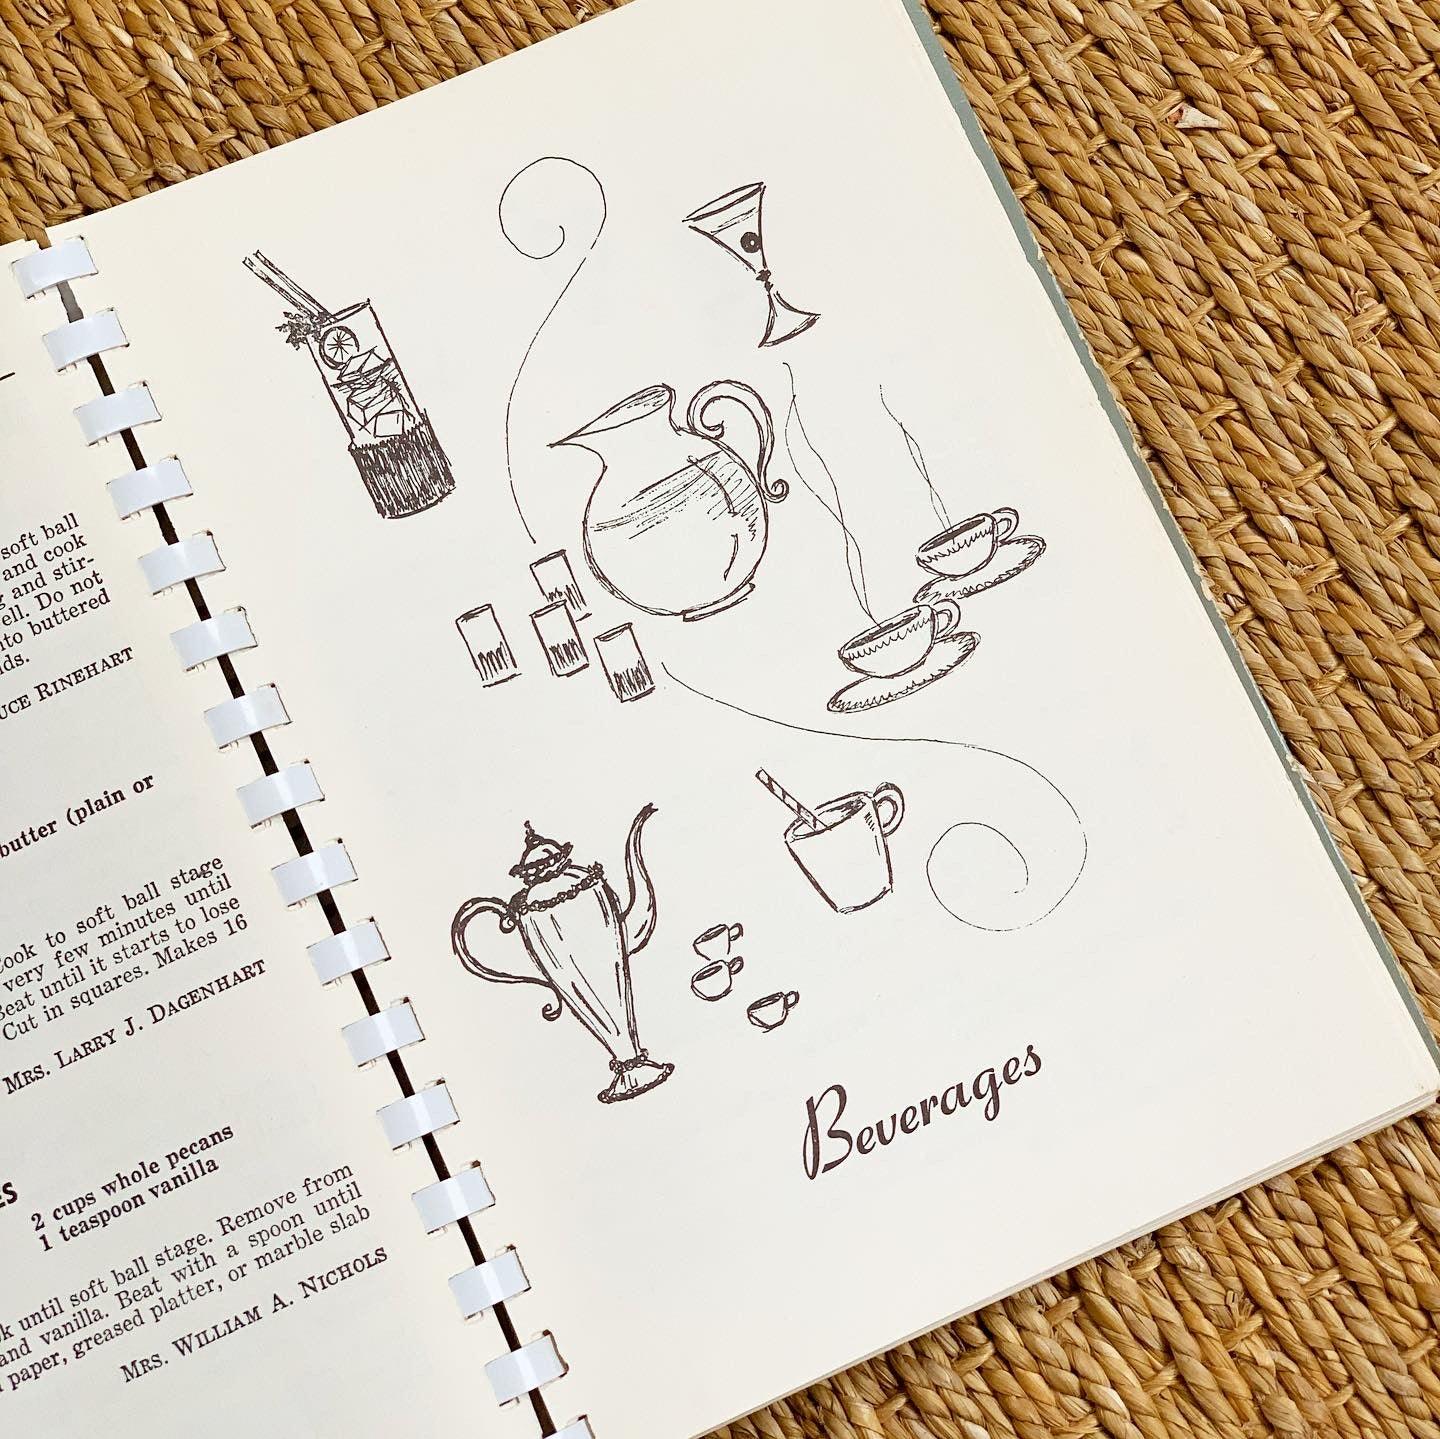 soft ball
and cook
and stir-
Do not
buttered
RINEHART
butter (plain or
Cook to soft ball stage
very few minutes until
Beat until it starts to lose
Cut in squares. Makes 16
MRS. LARRY J. DAGENHART
2 cups whole pecans
1 teaspoon vanilla
until soft ball stage. Remove from
and vanilla. Beat with a spoon until
paper, greased platter, or marble slab
MRS. WILLIAM A. NICHOLS
Beverages